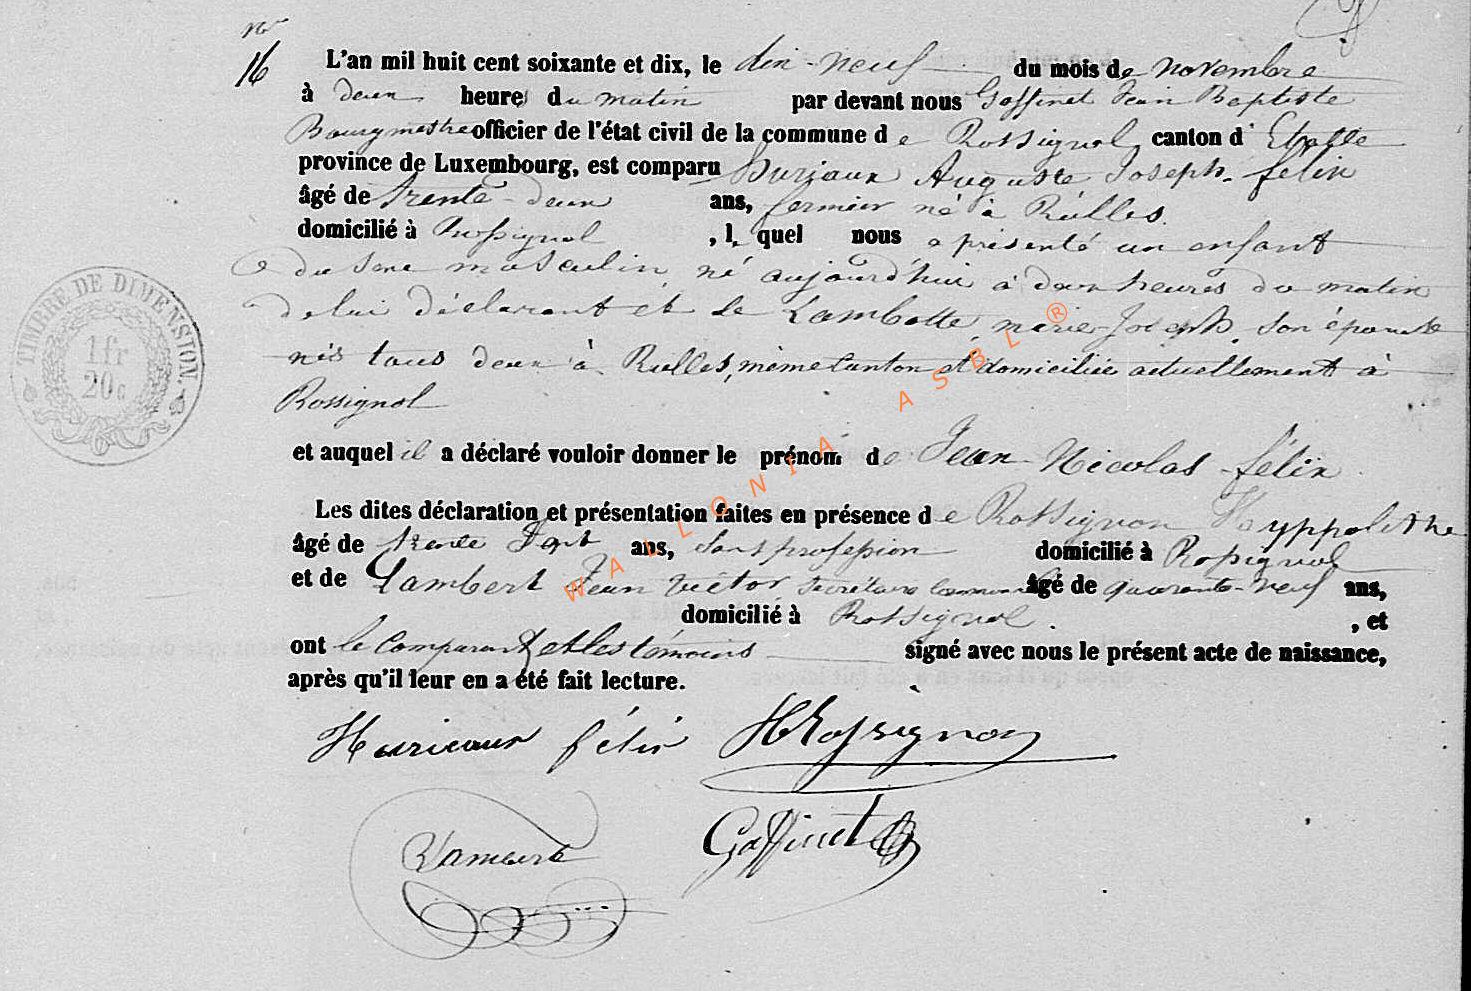 No
16
L'an mil huit cent soixante et dix, le dix-neuf du mois de novembre
à deux heures du matin par devant nous Goffinet Jean Baptiste
Bourgmestre officier de l'état civil de la commune de Rossignol canton d'Etalle
province de Luxembourg, est comparu Auguste Joseph-félix
âgé de trente-deux ans, fermier né à Rulles.
domicilié à Rossignol, lequel nous a présenté un enfant
du sexe masculin né aujourd'hui à deux heures du matin
de lui déclarant et de Lambotte marie-Joseph son épouse
nés tous deux à Rulles, même canton et domiciliés actuellement à
Rossignol
et auquel il a déclaré vouloir donner le prénom de Jean-Nicolas-félix
Les dites déclaration et présentation faites en présence de Rossignon Hyppolithe
âgé de trente sept ans, sans profession domicilié à Rossignol
et de Lambert Jean victor, secrétaire communal âgé de quarante-neuf ans,
domicilié à Rossignol. , et
ont le comparant et les témoins signé avec nous le présent acte de naissance,
après qu'il leur en a été fait lecture.
Huriaux félix HRossignon
Goffinet
TIMBRE DE DIMENSION.
1fr
20c
WALLONIA ASBL ®